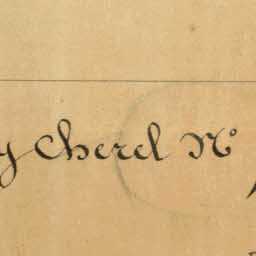 y Cherel Nº